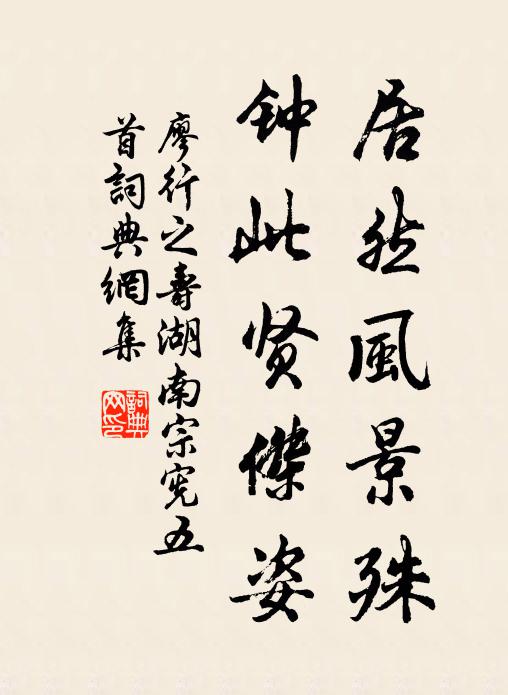 居然風景殊
钟此贤傑姿
廖行之壽湖南宗宪五
首詞典網集
詞典网印